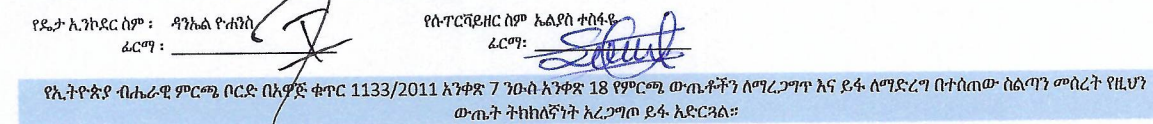 የዴታ ኢንኮደር ስም ፡ ዳንኤል ዮሐንስ የሱፐርቫይዘር ስም ኤልያስ ተስፋዬ
ፊርማ ፡ ፊርማ፡
የኢትዮጵያ ብሔራዊ ምርጫ ቦርድ በአዋጅ ቁጥር 1133/2011 አንቀጽ 7 ንዑስ አንቀጽ 18 የምርጫ ውጤቶችን ለማረጋገጥ እና ይፋ ለማድረግ በተሰጠው ስልጣን መሰረት የዚህን
ውጤት ትክክለኛነት አረጋግጦ ይፋ አድርጓል።